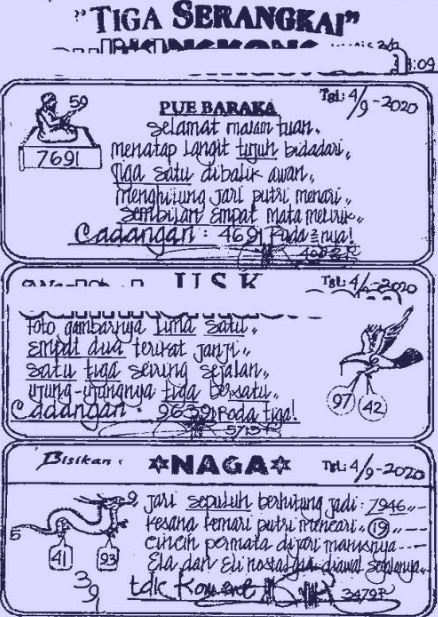 "TIGA SERANGKAI"
:09
59
7691
PUE BARAKA
Tgl: 4/9-2020
Selamat malam tuan,
menatap langit tujuh bidadari,
tiga satu dibalik awan,
menghitung jari putri menari,
sembilan empat mata melirik,
Cadangan : 4691
U S K
Tgl: 4/9-2020
foto gambarnya lima satu,
empat dua terikat janji,
satu tiga sering sejalan,
ujung-ujungnya tiga bersatu,
Cadangan : 9639 Roda tiga!
97
42
Bisikan :
NAGA
Tgl: 4/9-2020
5
9
41
93
39
jari sepuluh berhitung jadi : 7946
kesana kemari putri mencari, 19
cincin permata dijari manisnya
Ela dan Eli nostalgia diawal segalanya
tdk Koment